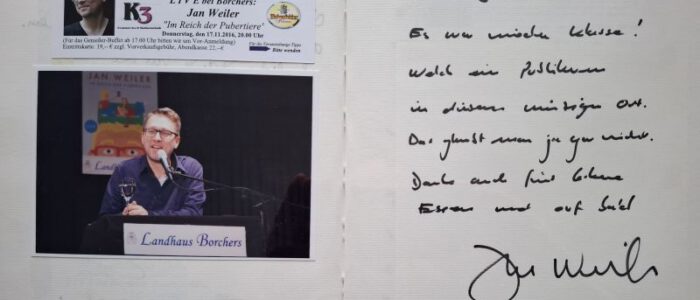 LIVE bei Borchers:
K3
Jan Weiler
"Im Reich der Pubertiere"
Donnerstag, den 17.11.2016, 20.00 Uhr
(Für das Genießer-Buffet ab 17.00 Uhr bitten wir um Vor-Anmeldung)
Eintrittskarte: 19,- € zzgl. Vorverkaufsgebühr, Abendkasse: 22,- €
Bitte wenden
JAN WEILER
Landhaus
Landhaus Borchers
Es war wieder klasse!
Welch ein Publikum
in diesem winzigen Ort.
Das glaubt man ja gar nicht.
Danke auch fürs leckere
Essen und auf bald
Jan Weiler